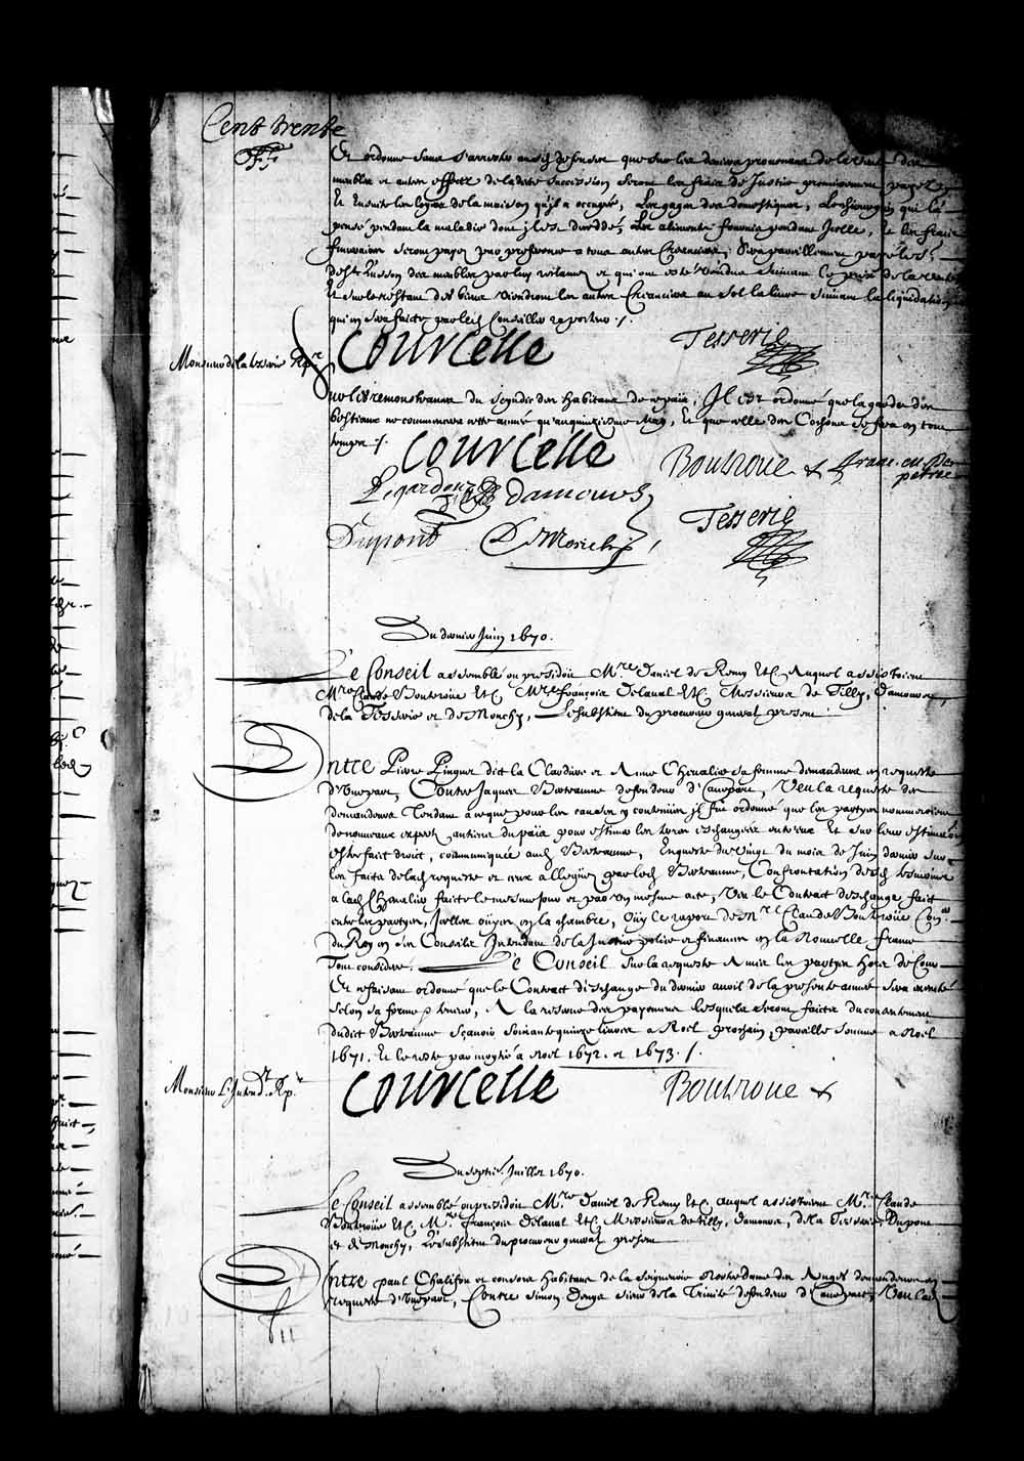 Cent trente
Et ordonné sans s'arrester ausd. defenses que sur les deniers provenans de la vente des
meubles et autres effects de ladite succession seront les frais de Justice premierement payez,
Et Ensuite les loyers de la maison qu'il a occupée, Les gages des domestiques, Le chirurgien qui l'a
pensé pendant la maladie dont il est decedé, Les alimens fournis pendant Icelle, Et les frais
funeraires seront payez par preference a tous autres Creanciers,
des meubles par luy reclamez et qui ont esté vendus suivant le prix de la vente
Et sur le restant des biens viendront les autres Creanciers au sol la livre suivant la liquidation
qui en sera faite par led. Conseiller raporteur ./.
Courcelle Tesserie
Monsieur de la tesserie Rp.r
Sur les remonstrances du scindic des habitans de ce païs, Il est ordonné que la garde des
bestiaux ne commencera cette année qu'au quinziesme May, Et que celle des Cochons se fera en tout
temps ./.
Courcelle Boutroue & franc. ev. de
petrée
L. gardeur Damours
Tesserie
Dupont De Monchy
Du dernier Juin 1670.
Le Conseil assemblé ou presidoit M.re Daniel de Remy Et.C. Auquel assistoient
M.re Claude Boutroüe Et.C. M.re françois Delaval Et.C. Messieurs de Tilly, Damours,
de la Tesserie et de Monchy, Le substitut du procureur general present
Entre Pierre Pinguet dit la Clardiere et Anne Chevalier sa femme demandeurs en requeste
d'Une part, Contre Jacques Berteaume defendeur d'Autre part, Veu la requeste des
demandeurs Tendante a ce que pour les causes y contenües il fut ordonné que les partyes nommeroient
de nouveaux expers antiens du païs pour estimer les terres eschangées entr'eux Et sur leur estimation
estre fait droit, communiquée aud. Berteaume, Enqueste du Vingt du mois de Juin dernier sur
les faits de lad. requeste et ceux alleguez par led. Berteaume, Confrontation desd. tesmoins
a lad. Chevalier faite le mesme jour et par un mesme acte, Veu le Contract d'eschange fait
entre les partyes, Icelles oüyes en la chambre, Oüy le raport de M.re Claude Boutroüe Con.er
du Roy en ses Conseils Intendant de la Justice police et finances en la Nouvelle france
Tout consideré. Le Conseil Sur la requeste A mis les partyes hors de Cour
Et ce faisant ordonné que le Contract d'eschange du dernier avril de la presente année sera executé
selon sa forme & teneur, A la reserve des payemens lesquels seront faits du consentement
dudit Berteaume Sçavoir Soixante quinze livres a Noel prochain, pareille somme a Noel
1671. Et le reste par moytié a Noel 1672. et 1673. /.
Monsieur L'Intend.t Rp.r
Courcelle Boutroue &
Du sept.e Juillet 1670.
Le Conseil assemblé ou presidoit M.re Daniel de Remy Et.C. Auquel assistoient M.re Claude
Boutroüe Et.C. M.re François Delaval Et.C. Messieurs de Tilly, Damours, de la Tesserie, Dupont
et de Monchy, Le substitut du procureur general present
Entre paul Chalifou et consors Habitans de la Seigneurie Nostre Dame des Anges demandeurs en
requeste d'Une part, Contre Simon Denys sieur de la Trinité defendeur d'Autre part, Veu lad.